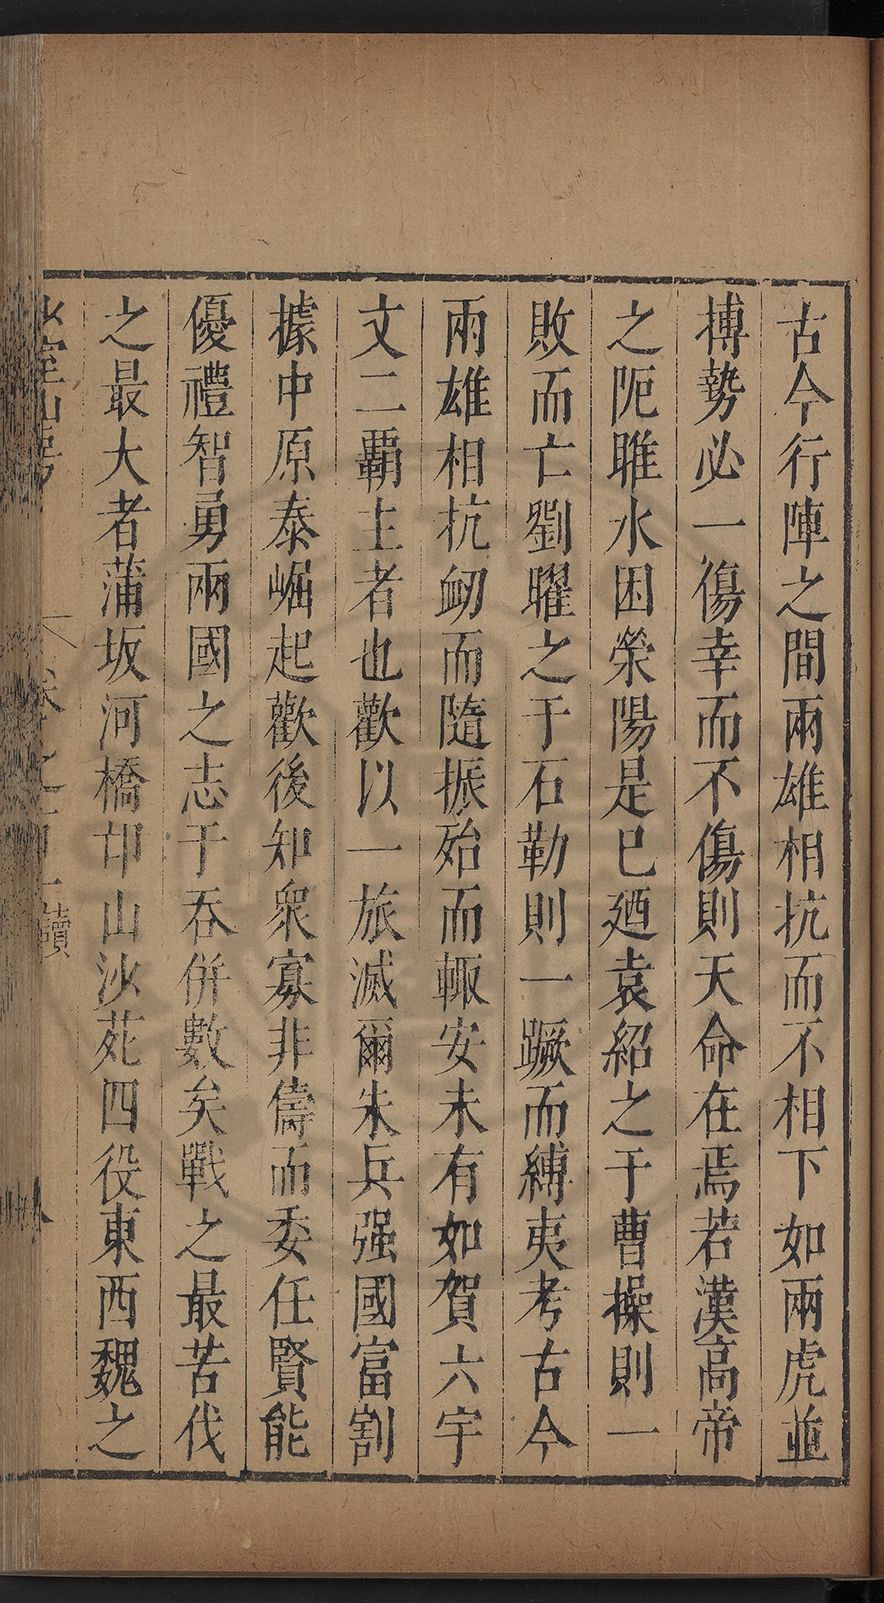 古今行陣之間兩雄相抗而不相下如兩虎並
搏勢必一傷幸而不傷則天命在焉若漢高帝
之阨睢水困滎陽是已廼袁紹之于曹操則一
敗而亡劉曜之于石勒則一蹶而縛夷考古今
兩雄相抗衂而隨振殆而輙安未有如賀六宇
文二覇主者也歡以一旅滅爾朱兵强國富割
據中原泰崛起歡後知衆寡非儔而委任賢能
優禮智勇兩國之志于吞併數矣戰之最苦伐
之最大者蒲坂河橋邙山沙苑四役東西魏之
室山房